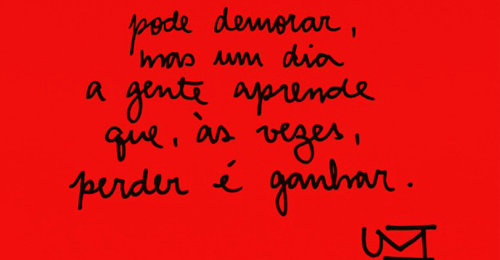 pode demorar,
mas um dia
a gente aprende
que, às vezes,
perder é ganhar.
UM